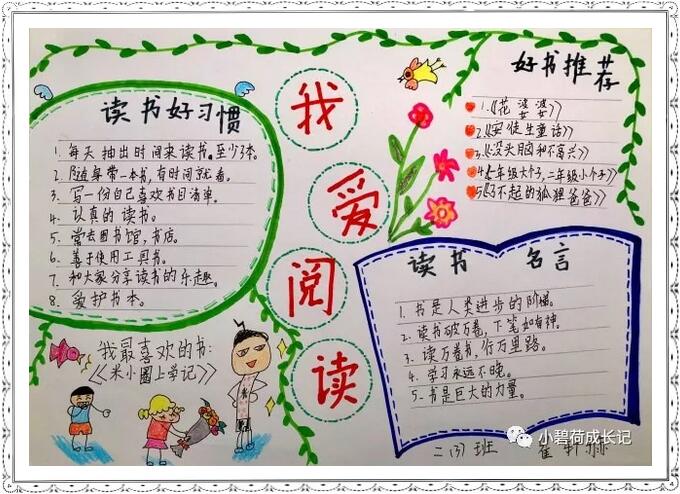 我
爱
阅
读
读书好习惯
1.每天抽出时间来读书。至少3本。
2.随身带一本书,有时间就看。
3.写一份自己喜欢书目清单。
4.认真的读书。
5.常去图书馆,书店。
6.善于使用工具书。
7.和大家分享读书的乐趣。
8.爱护书本。
好书推荐
1.《花婆婆》
2.《安徒生童话》
3.《没头脑和不高兴》
4.《七年级大个子,二年级小个子》
5.《了不起的狐狸爸爸》
读书 名言
1.书是人类进步的阶梯。
2.读书破万卷,下笔如有神。
3.读万卷书,行万里路。
4.学习永远不晚。
5.书是巨大的力量。
我最喜欢的书:
《米小圈上学记》
二(3)班 崔
小碧荷成长记